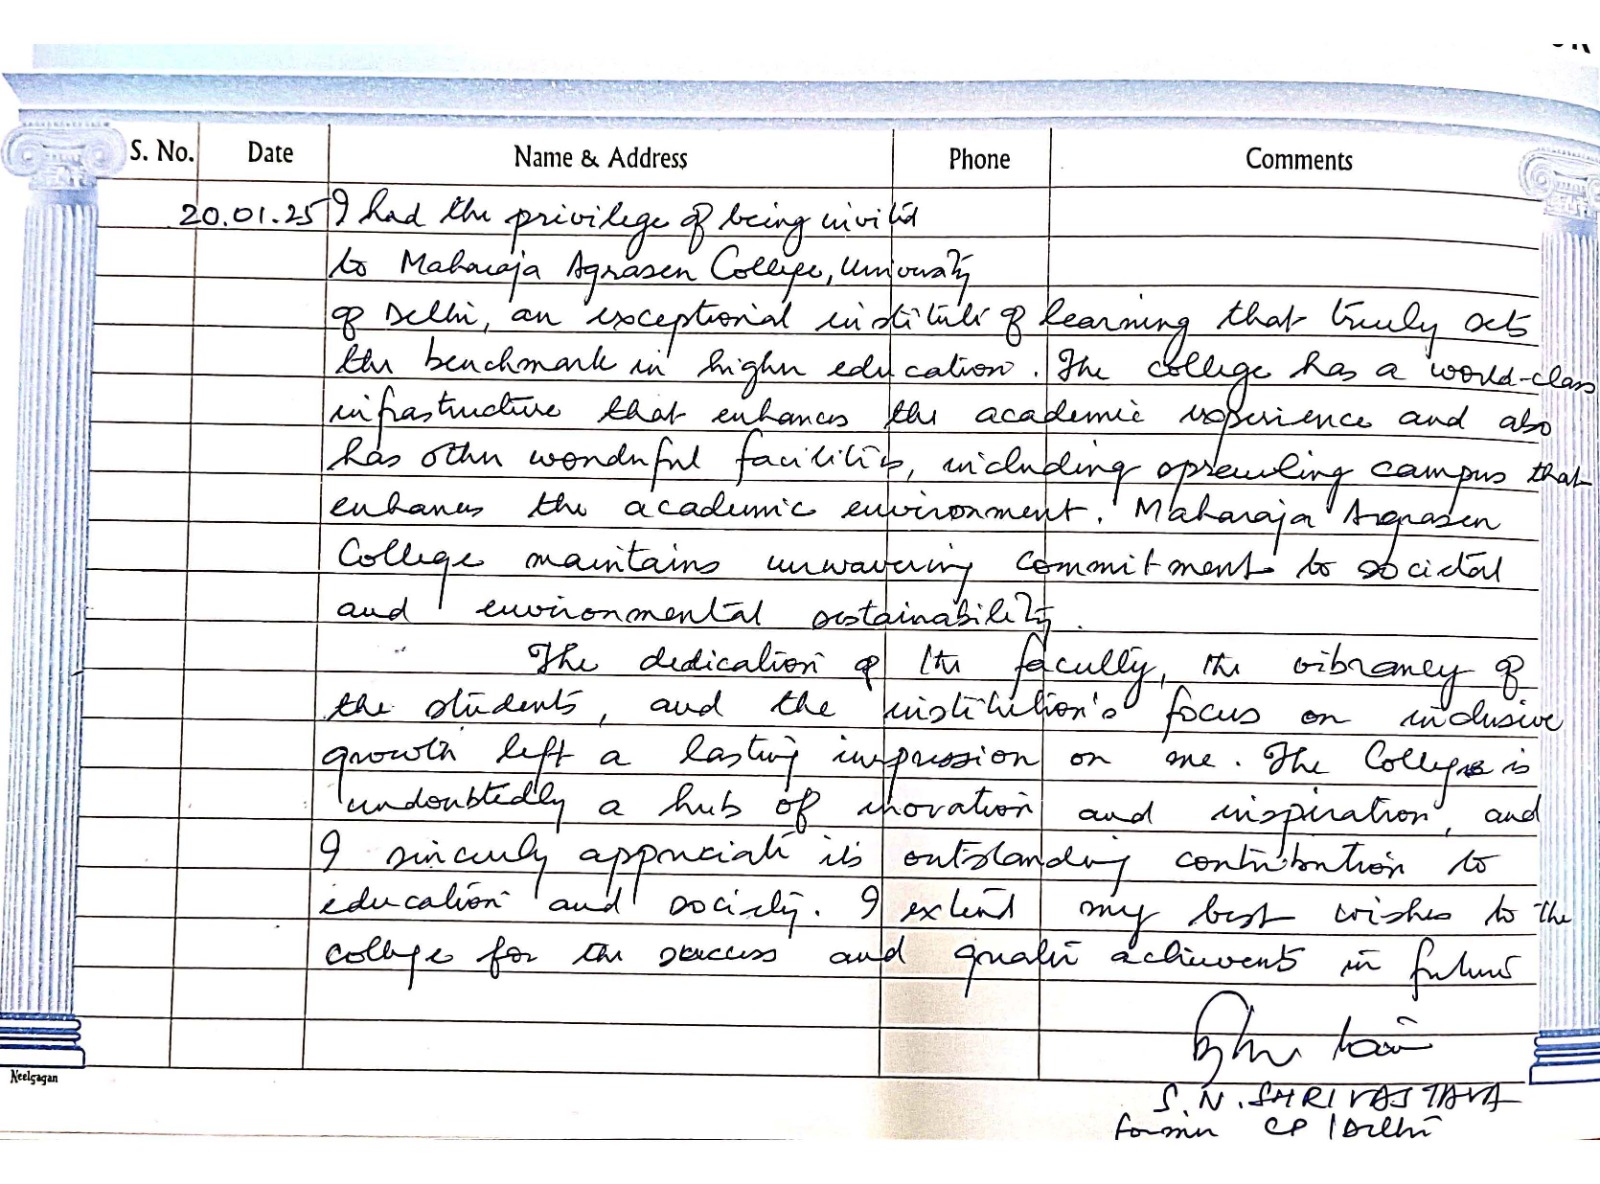 S. No. Date Name & Address Phone Comments
20.01.25 I had the privilege of being invited
to Maharaja Agrasen College, University
of Delhi, an exceptional institute of learning that truly sets
the benchmark in higher education. The college has a world-class
infrastructure that enhances the academic experience and also
has other wonderful facilities, including sprewling campus that
enhances the academic environment. Maharaja Agrasen
College maintains unwavering commitment to societal
and environmental sustainability.
The dedication of the faculty, the vibrancy of
the students, and the institution's focus on inclusive
growth left a lasting impression on me. The College is
undoubtedly a hub of inovation and inspiration, and
I sincerely appreciate its outstanding contribution to
education and society. I extend my best wishes to the
college for the success and greater achievents in future
S. N. SHRIVASTAVA
Neelgagan
former CP Delhi